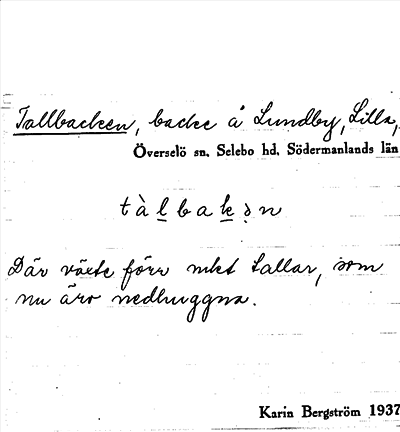 Tallbacken, backe å Lundby, Lilla,
Överselö sn. Selebo hd. Södermanlands län
tàl̲bak̲ə̣n
Där växte förr mkt tallar, som
nu äro nedhuggna.
Karin Bergström 1937